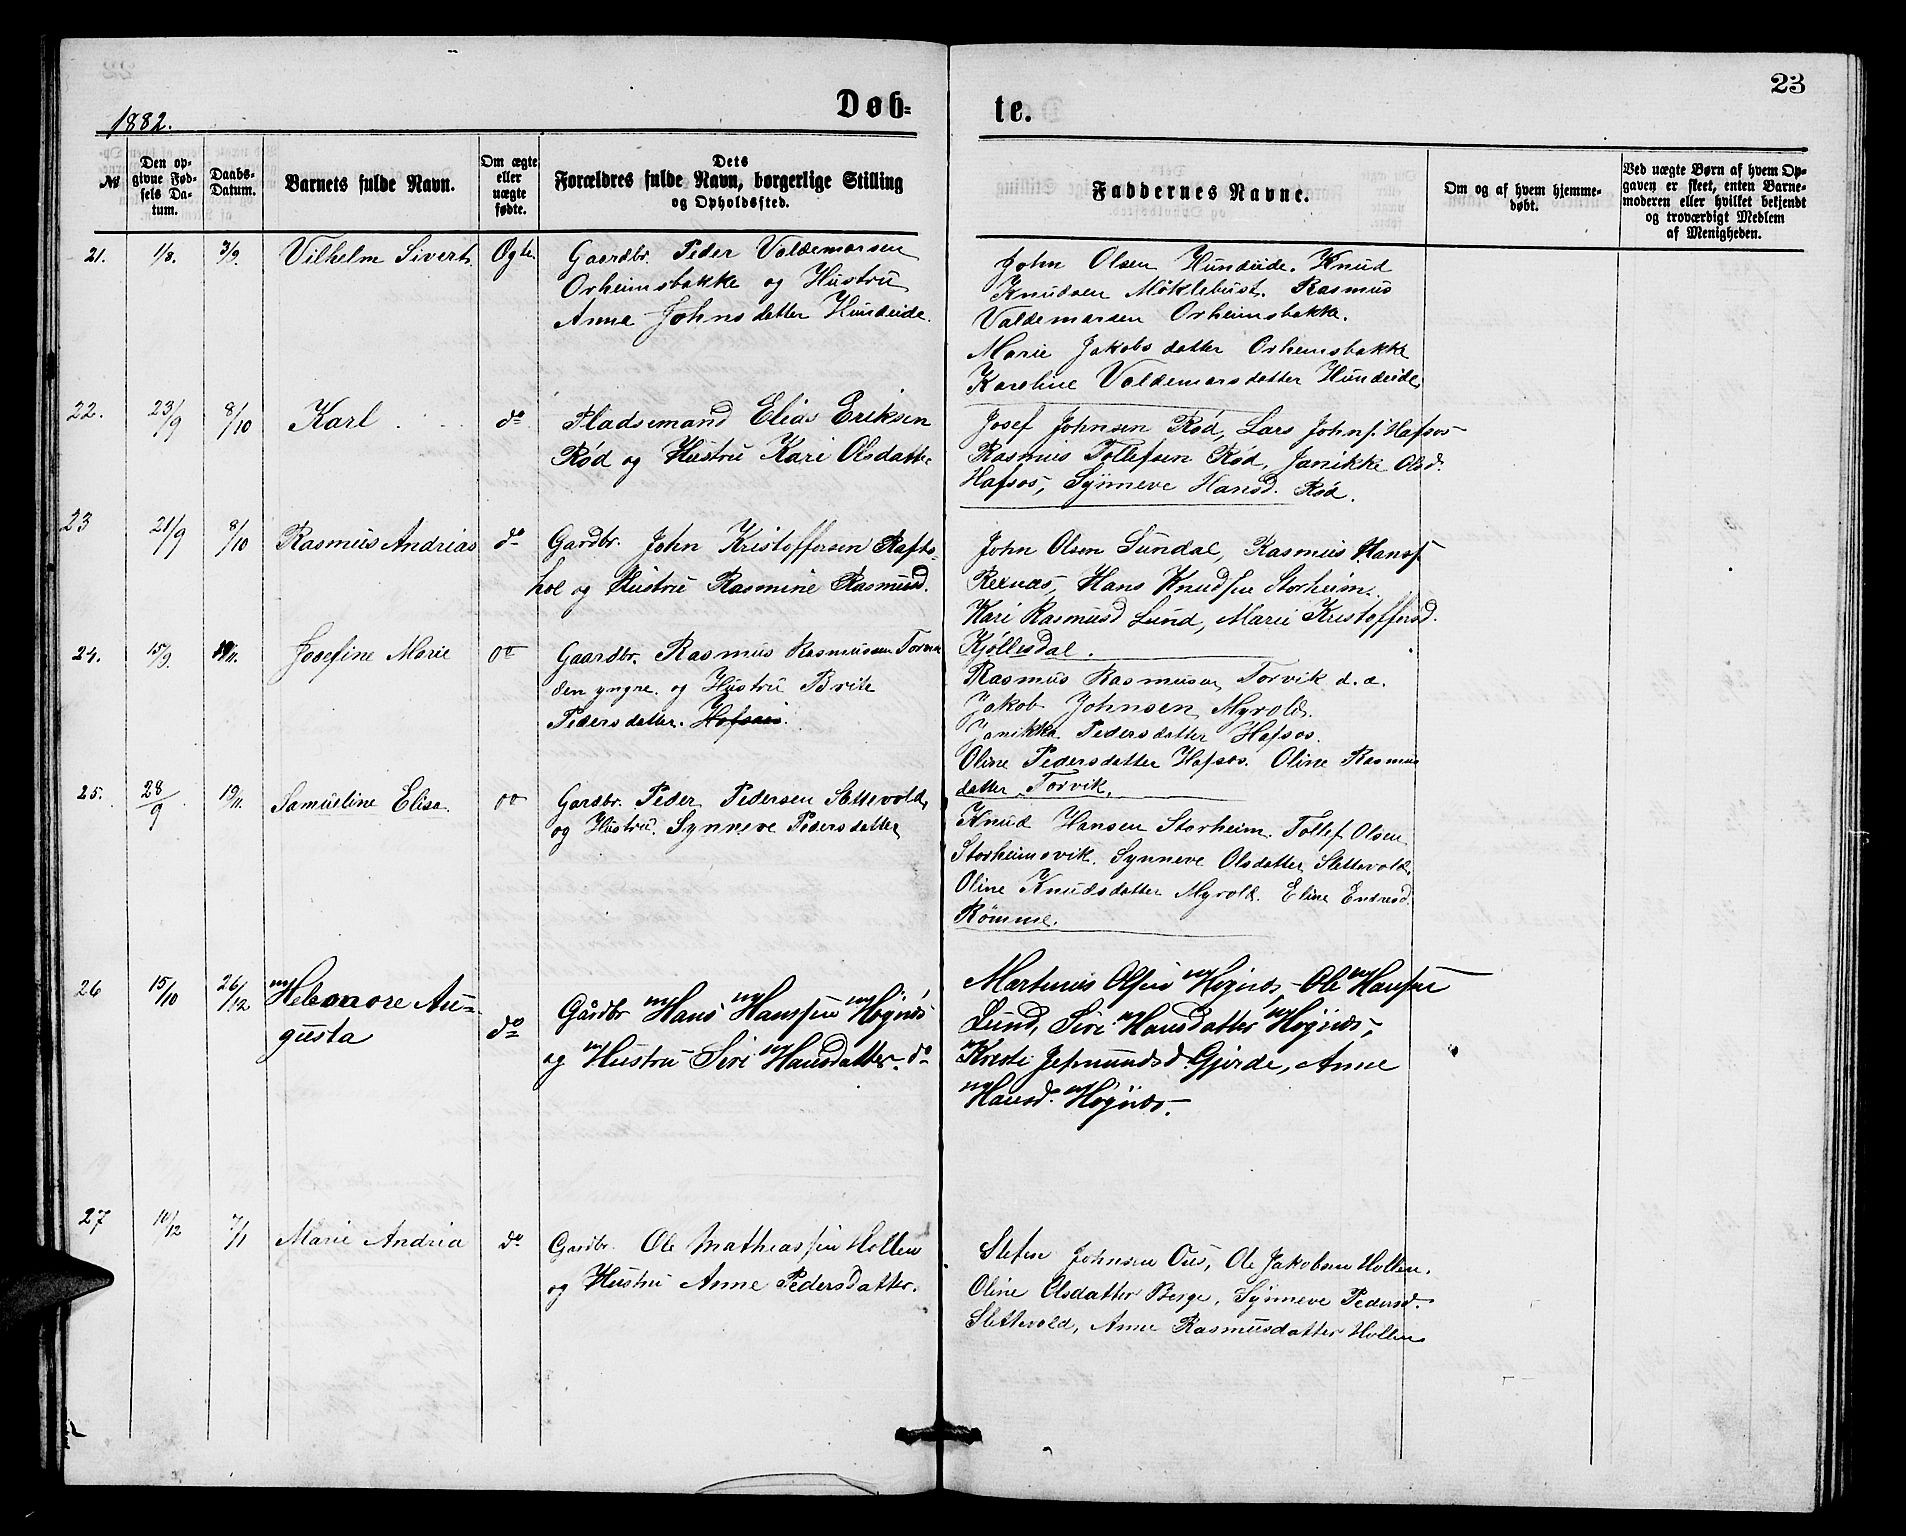 23
Døb-
te.
1882.
№
Den op-
givne Fød-
sels Da-
tum.
Daabs-
Datum.
Barnets fulde Navn.
Om ægte
eller
uægte
fødte.
Dets
Forældres fulde Navn, borgerlige Stilling
og Opholdssted.
Faddernes Navne.
Om og af hvem hjemme-
døbt.
Ved uægte Børn af hvem Op-
gaven er skeet, enten Barne-
moderen eller hvilket bekjendt
og troværdigt Medlem
af Menigheden.
21. 1/8. 3/9. Vilhelm Sivert Ægte
Gaardbr. Peder Valdemarsen
Orheimsbakke og Hustru
Anne Johnsdatter Hundeide.
John Olsen Hundeide. Knud
Knudsen Møklebust. Rasmus
Valdemarsen Orheimsbakke.
Marie Jakobsdatter Orheimsbakke
Karoline Valdemarsdatter Hundeide
22. 23/9 8/10 Karl do
Pladsemand Elias Eriksen
Rød og Hustru Kari Olsdatter
Josef Johnsen Rød, Lars Johns. Hafsos
Rasmus Tollefsen Rød, Janikke Olsd.
Hafsos, Synneve Hansd. Rød.
23 21/9 8/10 Rasmus Andrias do
Gardbr. John Kristoffersen Rafts-
hol og Hustru Rasmine Rasmusd.
John Olsen Sundal, Rasmus Hans.
Rexnæs, Hans Knudsen Storheim.
Kari Rasmusd Lund, Marie Kristoffersd.
Kjøllesdal.
24. 15/9. 19/11. Josefine Marie do
Gaardbr. Rasmus Rasmussen Torvik
den yngre. og Hustru Brite
Pedersdatter. Hafsos.
Rasmus Rasmusen Torvik d.æ.
Jakob Johnsen Myrold.
Janikke Pedersdatter Hafsos.
Oline Pedersdatter Hafsos. Oline Rasmus
datter Torvik.
25. 28/9 19/11. Samueline Elisa do
Gardbr. Peder Pedersen Slettevold,
og Hustru. Synneve Pedersdatter
Knud Hansen Storheim. Tollef Olsen
Storheimsvik. Synneve Olsdatter Slettevold,
Oline Knudsdatter Myrold. Eline Endresd.
Rømme.
26 15/10 26/12 Helenore Au-
gusta do
Gårdbr Hans Hanssen Høgnæs
og Hustru Siri Hansdatter do
Martinus Olsen Høgnæs, Ole Hansen
Lund, Siri Hansdatter Høgnæs,
Kristi Jetmundsd. Gjerde, Anne
Hansd. Høgnæs.
27 10/12 7/1 Marie Andria do
Gardbr. Ole Mathiassen Hollen
og Hustru Anne Pedersdatter.
Stefen Johnsen Ous, Ole Jakobsen Hollen.
Oline Olsdatter Berge, Synneve Pedersd.
Slettevold, Anne Rasmusdatter Hollen